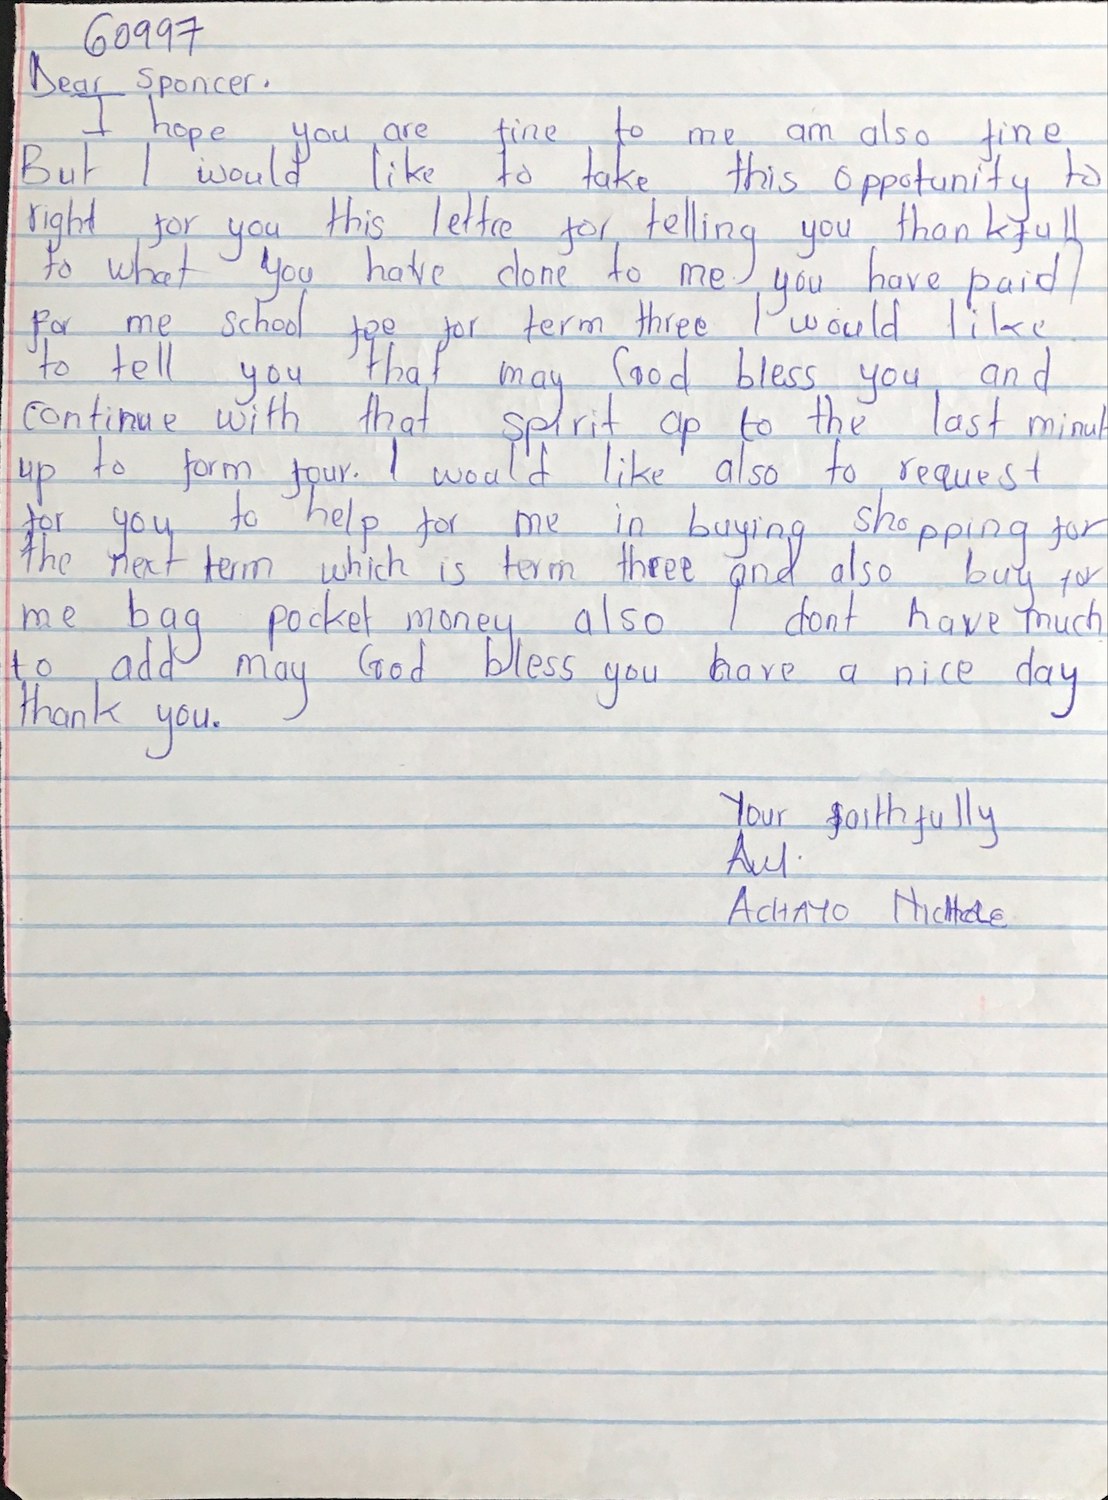 60997
Dear Sponcer.
I hope you are fine to me am also fine
But I would like to take this oppotunity to
right for you this lettre for telling you thankfull
to what you have done to me you have paid
for me school fee for term three I would like
to tell you that may God bless you and
continue with that spirit ap to the last minut
up to form four. I would like also to request
for you to help for me in buying shopping for
the next term which is term three and also buy for
me bag pocket money also I dont have much
to add may God bless you have a nice day
thank you.
Your faithfully
ACHAYO